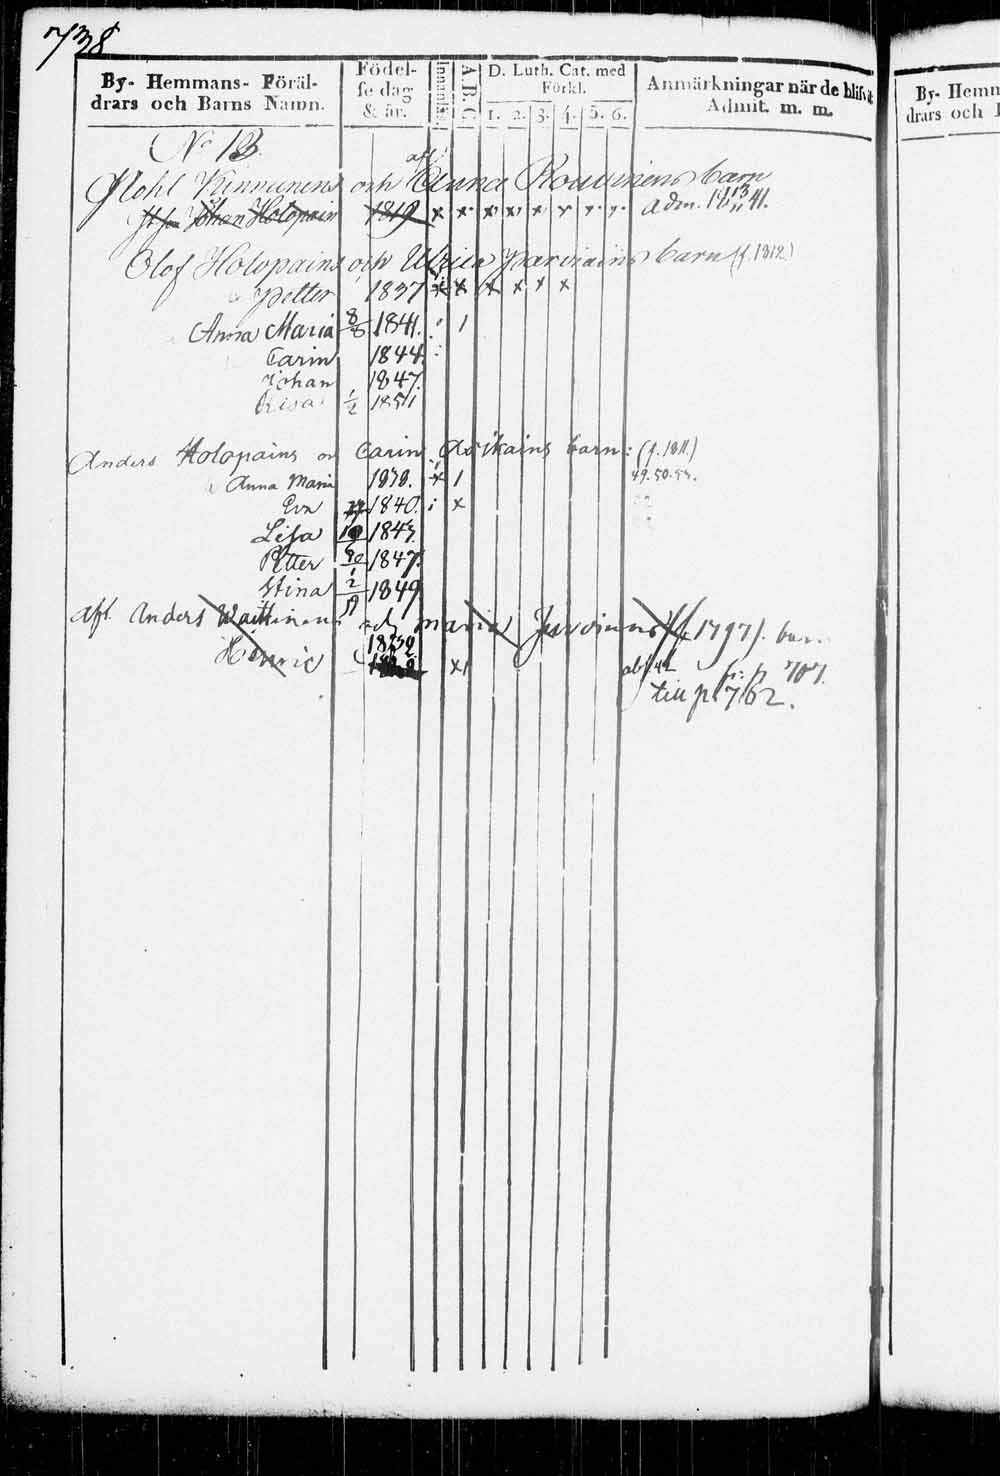 738
By- Hemmans- Föräl-
drars och Barns Namn.
Födel-
se dag
& år.
Innanläs
A. B. C.
D. Luth. Cat. med
Förkl.
1. 2. 3. 4. 5. 6.
Anmärkningar när de blifvit
Admit. m. m.
By- Hemm
drars och
No 13.
afl.
Mohl Kinnunens och Anna Rouvinens barn
Johan Holopain 1819 x x x x x x x x adm. 41.
Olof Holopains och Ulrica Parviains barn (f. 1812)
Petter 1837 x x x x x x
Anna Maria 8/8 1841. 1
Carin 1844.
Johan 1847.
Lisa 1/2 1851
Anders Holopains o Carin barn: (f. 1811.)
Anna Maria 1838. x 1 49. 50. 53.
Eva 1840. x
Lisa 1843.
Petter 1847.
Stina 1849
Afl. Anders och Maria (f. 1797). barn
Henric 1832. x 1 abs. 42 fr. p 707.
till p. 762.